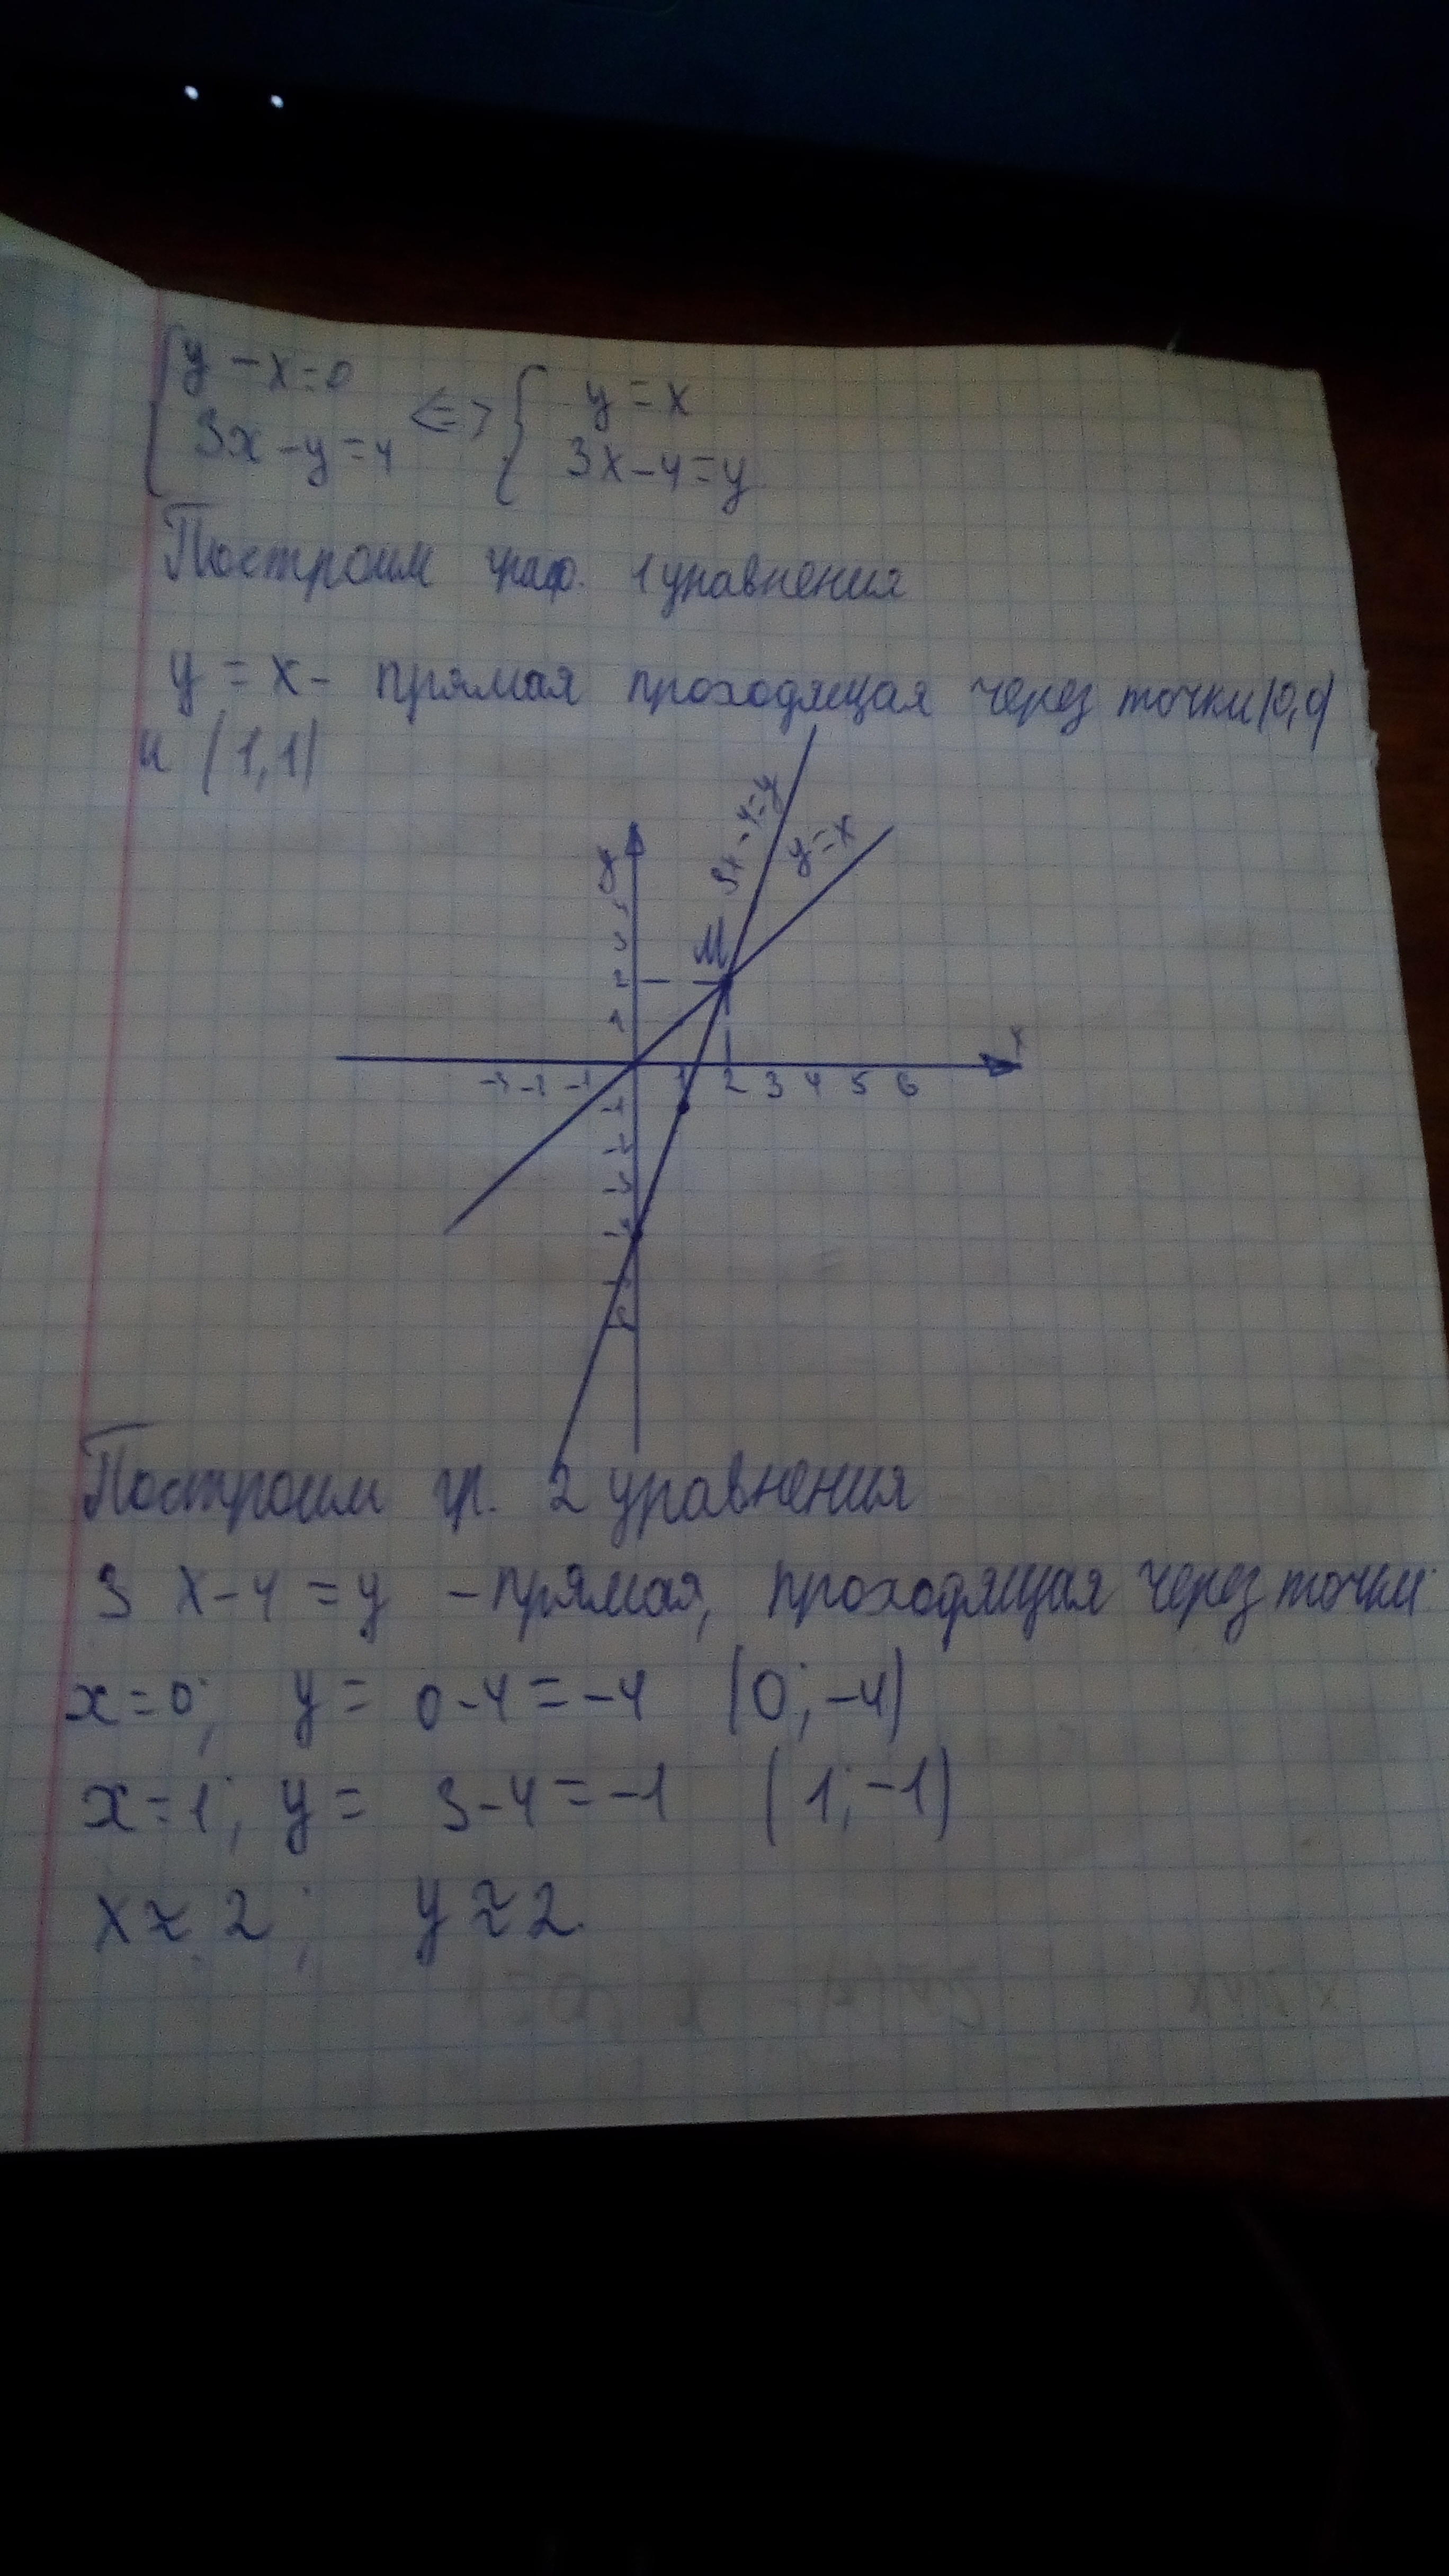 { y - x = 0
3x - y = 4 <=> { y = x
3x - 4 = y
Построим граф. 1 уравнения
y = x - прямая проходящая через точки (0,0)
и (1,1)
3x - 4 = y
y = x
y
M
3
2
1
x
-3 -2 -1 1 2 3 4 5 6
-1
-2
-3
-4
Построим гр. 2 уравнения
3x - 4 = y - прямая, проходящая через точки:
x = 0; y = 0 - 4 = -4 (0; -4)
x = 1; y = 3 - 4 = -1 (1; -1)
x ≈ 2; y ≈ 2.